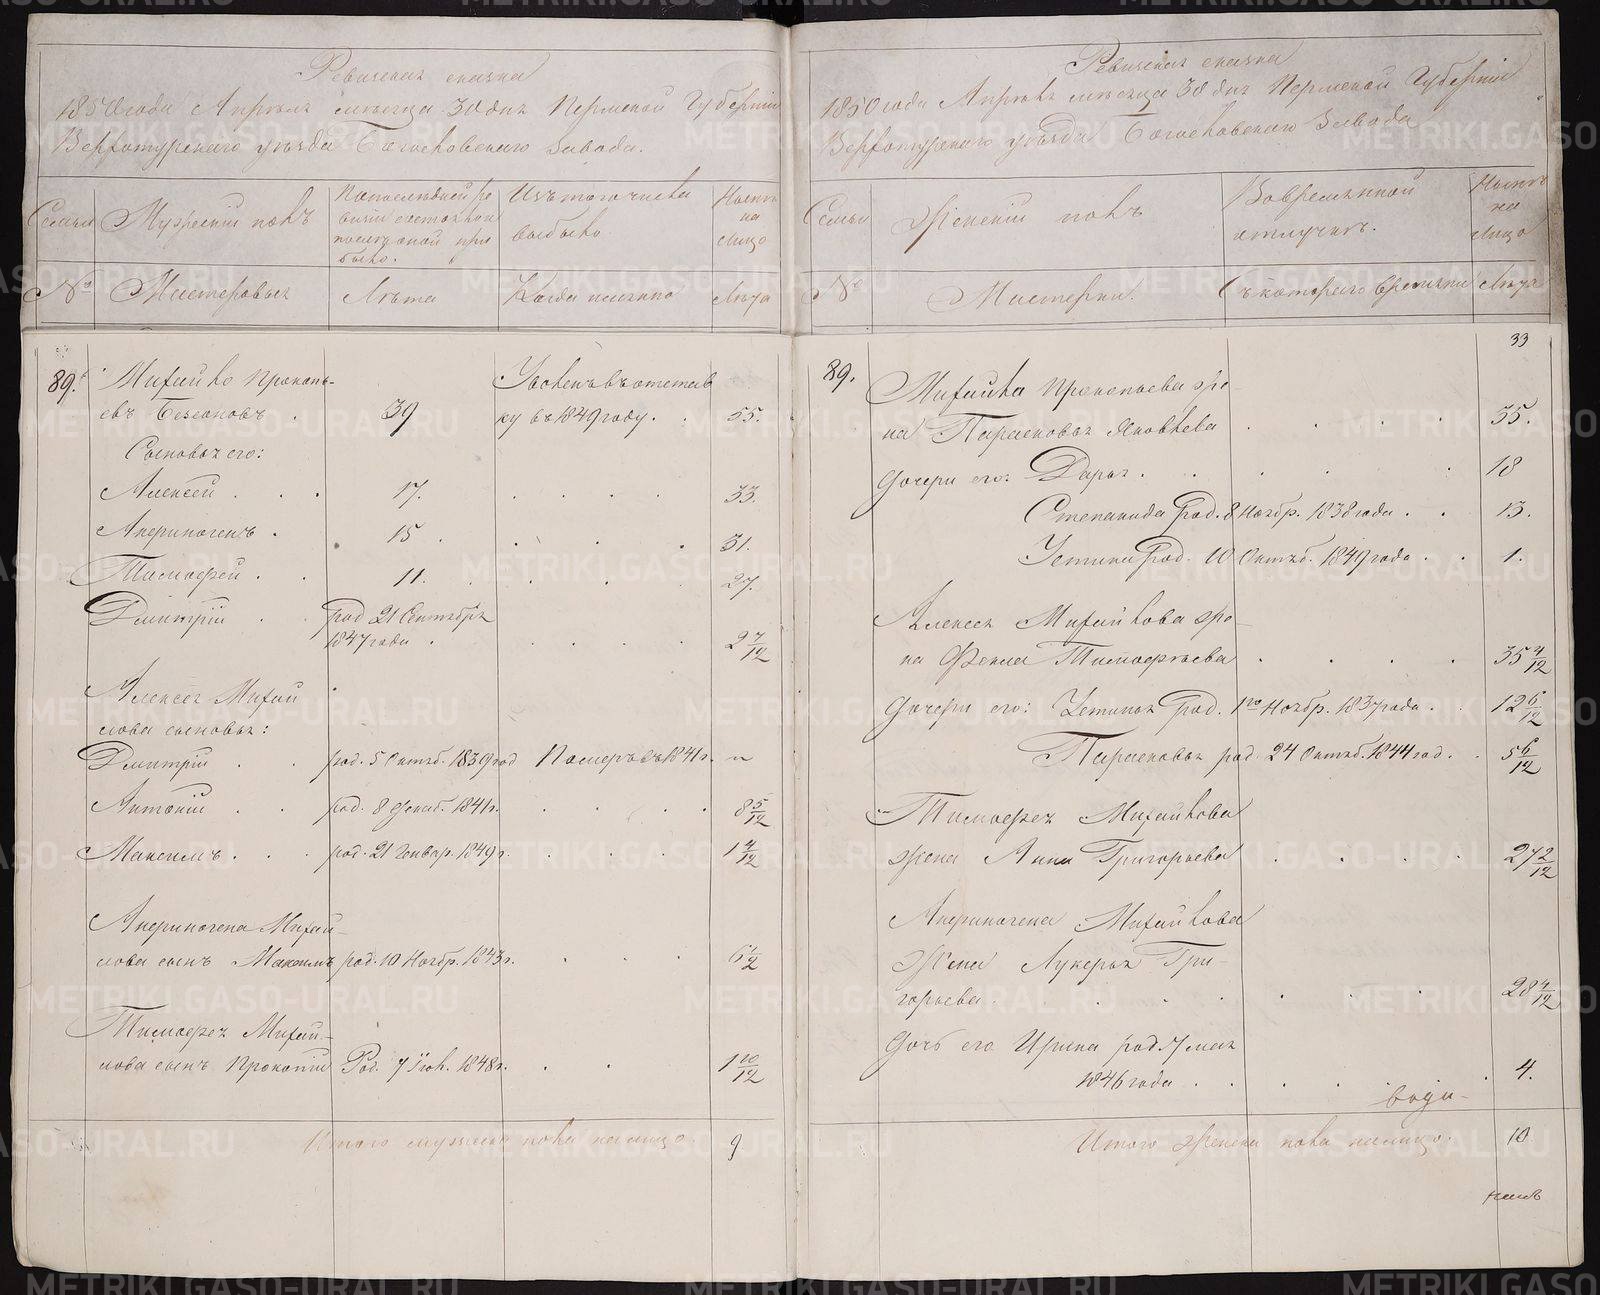 Ревизская сказка
1850 года Апреля месяца 30 дня Пермской Губернии
Верхотурскаго уезда Богословскаго Завода.
Семьи
Мужескій полъ
По последней ре
визіи состояло и
после оной при
было.
Изъ того числа
выбыло.
Ныне
на
лицо
№
Мастеровыхъ
Лета
Когда именно
Лета
89.
Михайло Прокопь-
евъ Безсоновъ .
39
Уволенъ въ отстав
ку въ 1849 году.
55.
Сыновья его:
Алексей . . .
17.
33.
Анфиногенъ .
15
31.
Тимофей .
11.
27.
Дмитрій
род 21 Сентября
1847 года .
2 7/12
Алексея Михай
лова сыновья:
Дмитрій
род. 5 Октяб. 1839 год
Померъ въ 1841 г.
"
Антоній
род. 8 Декаб. 1841 г.
8 5/12
Максимъ .
род. 21 Генвар. 1849 г.
1 4/12
Анфиногена Михай-
лова сынъ Максимъ
род. 10 Ноябр. 1843 г.
6 1/2
Тимофея Михай-
лова сынъ Прокопій
Род. 7 Іюн. 1848 г.
1 10/12
Итого мужеска пола на лицо.
9
Ревизская сказка
1850 года Апреля месяца 30 дня Пермской Губерніи
Верхотурскаго уезда Богословскаго Завода
Семьи
Женскій полъ
Во временной
отлучке.
Ныне
на
лицо
№
Мастерки.
Съ котораго времени
Лета
33
89.
Михайла Прокопьева же-
на Парасковья Яковлева
55.
Дочери его: Дарья .
18
Степанида род. 8 Ноябр. 1838 года .
13.
Устина род. 10 Октяб. 1849 года
1.
Алексея Михайлова же-
на Фекла Тимофеева
35 4/12
Дочери его: Устинья род. 1го Ноябр. 1837 года .
12 6/12
Парасковья род. 24 Октяб. 1844 год.
5 6/12
Тимофея Михайлова
жена Анна Григорьева
27 2/12
Анфиногена Михайлова
жена Лукерья Гри-
горьева.
28 4/12
Дочь его Ирина род. 7 мая
1846 года .
4.
Итого женска пола на лицо.
10